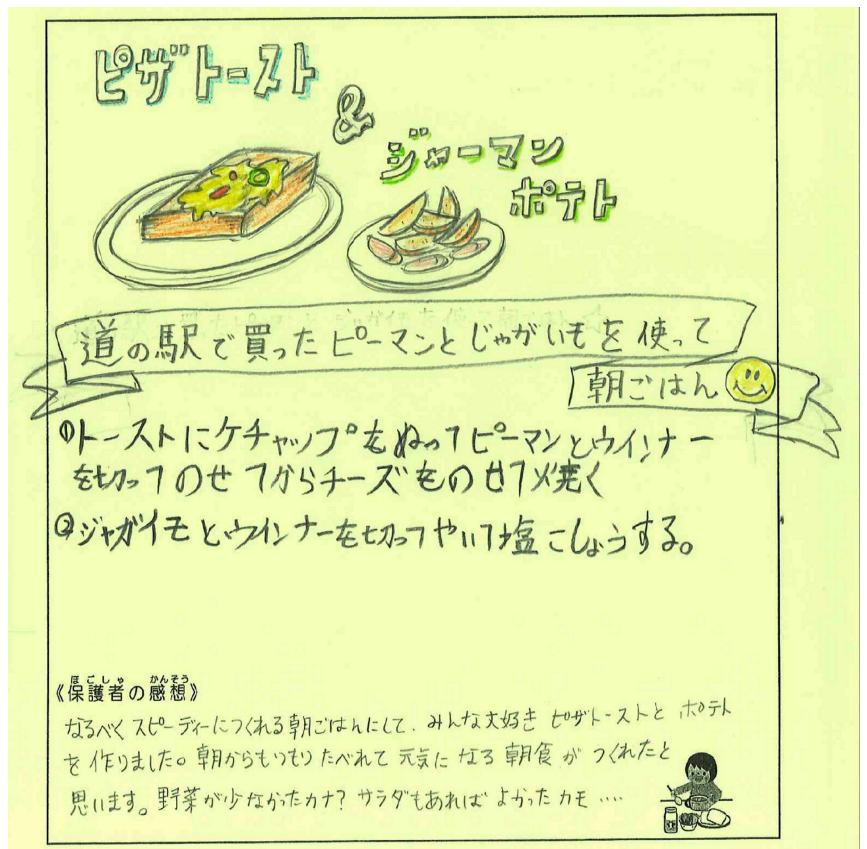 ピザトースト
&
ジャーマン
ポテト
道の駅で買ったピーマンとじゃがいもを使って
朝ごはん
①トーストにケチャップをぬってピーマンとウインナー
を切ってのせてからチーズをのせて焼く
②ジャガイモとウインナーを切ってやいて塩こしょうする。
《保護者の感想》
なるべくスピーディーにつくれる朝ごはんにして、みんな大好きピザトーストとポテト
を作りました。朝からもりもりたべれて元気になる朝食がつくれたと
思います。野菜が少なかったカナ?サラダもあればよかったカモ‥‥